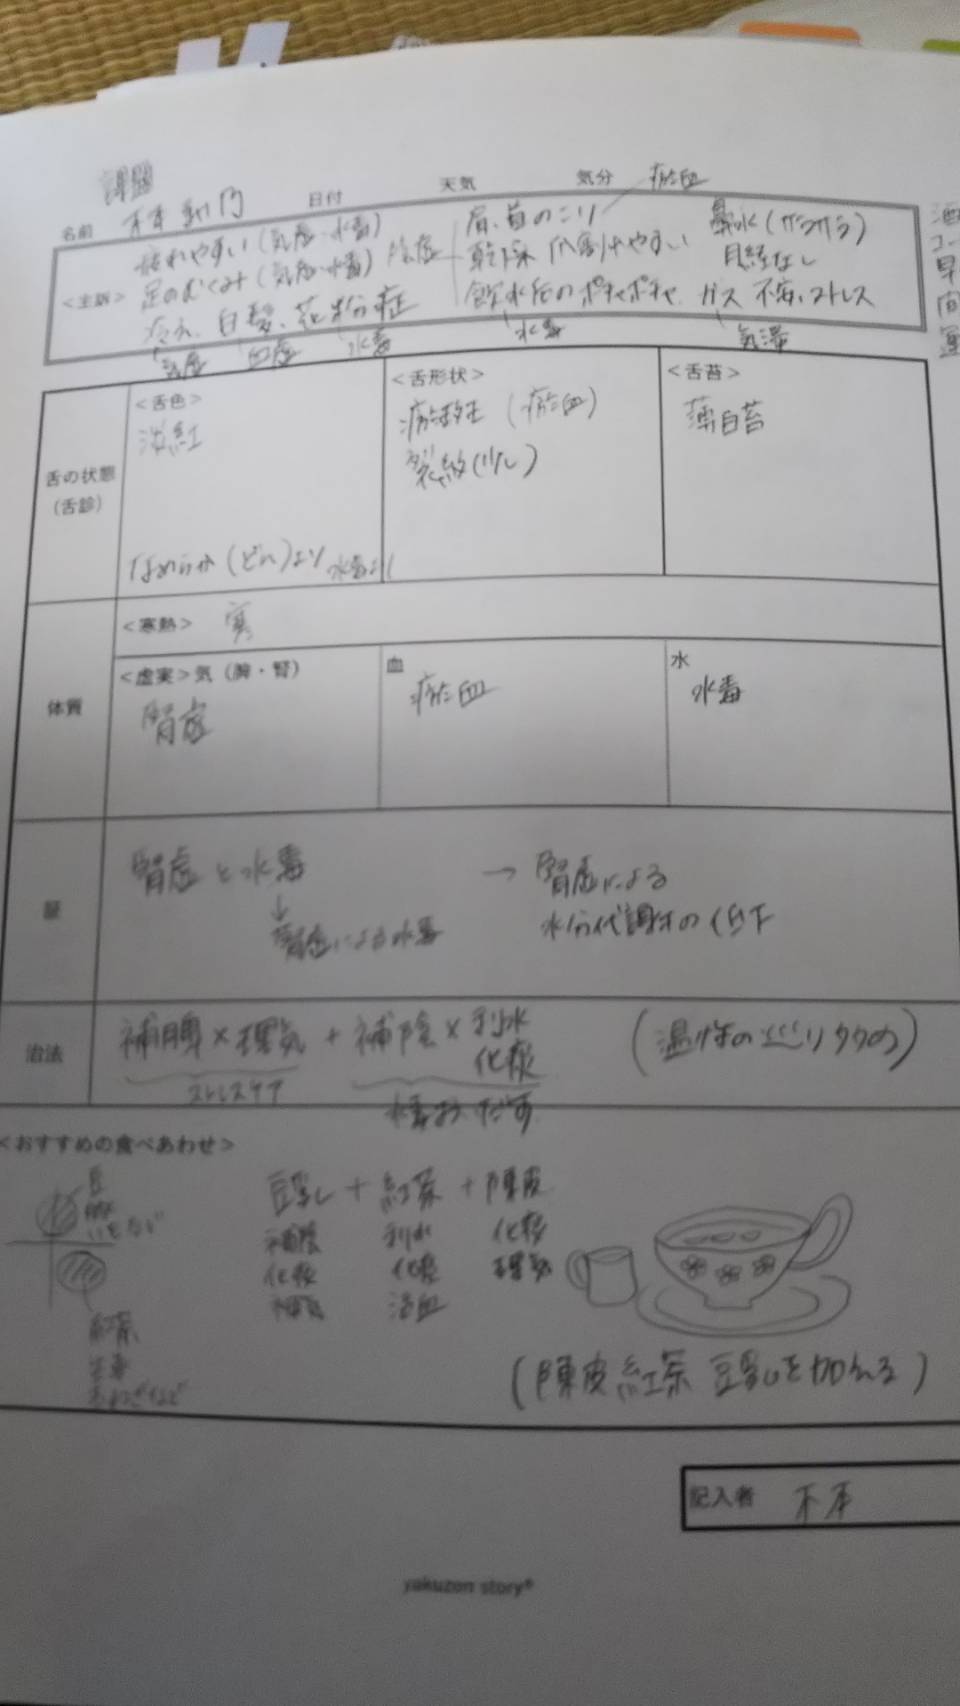 課題
名前 日付 天気 気分 瘀血
<主訴> 疲れやすい(気虚・水毒) 肩、首のこり 鼻水
足のむくみ(気虚・水毒) 陰虚 乾燥 爪割れやすい 月経なし
冷え、白髪、花粉症 飲水后のポチャポチャ ガス 不安、ストレス
気虚 血虚 水毒 水毒 気滞
舌の状態
(舌診)
<舌色>
淡紅
なめらか
<舌形状>
瘀斑 (瘀血)
裂紋(少し)
<舌苔>
薄白苔
体質
<寒熱> 寒
<虚実>気(脾・腎)
腎虚
血
瘀血
水
水毒
証
腎虚と水毒 → 腎虚による
↓ 水分代謝の低下
腎虚による水毒
治法
補脾×理気+補陰×利水
化痰
ストレスケア
<おすすめの食べあわせ>
豆乳+紅茶+陳皮
補陰 利水 化痰
化痰 化痰 理気
補気 活血
豆
紅茶
(陳皮紅茶 豆乳を加える)
記入者
yakuzen story®